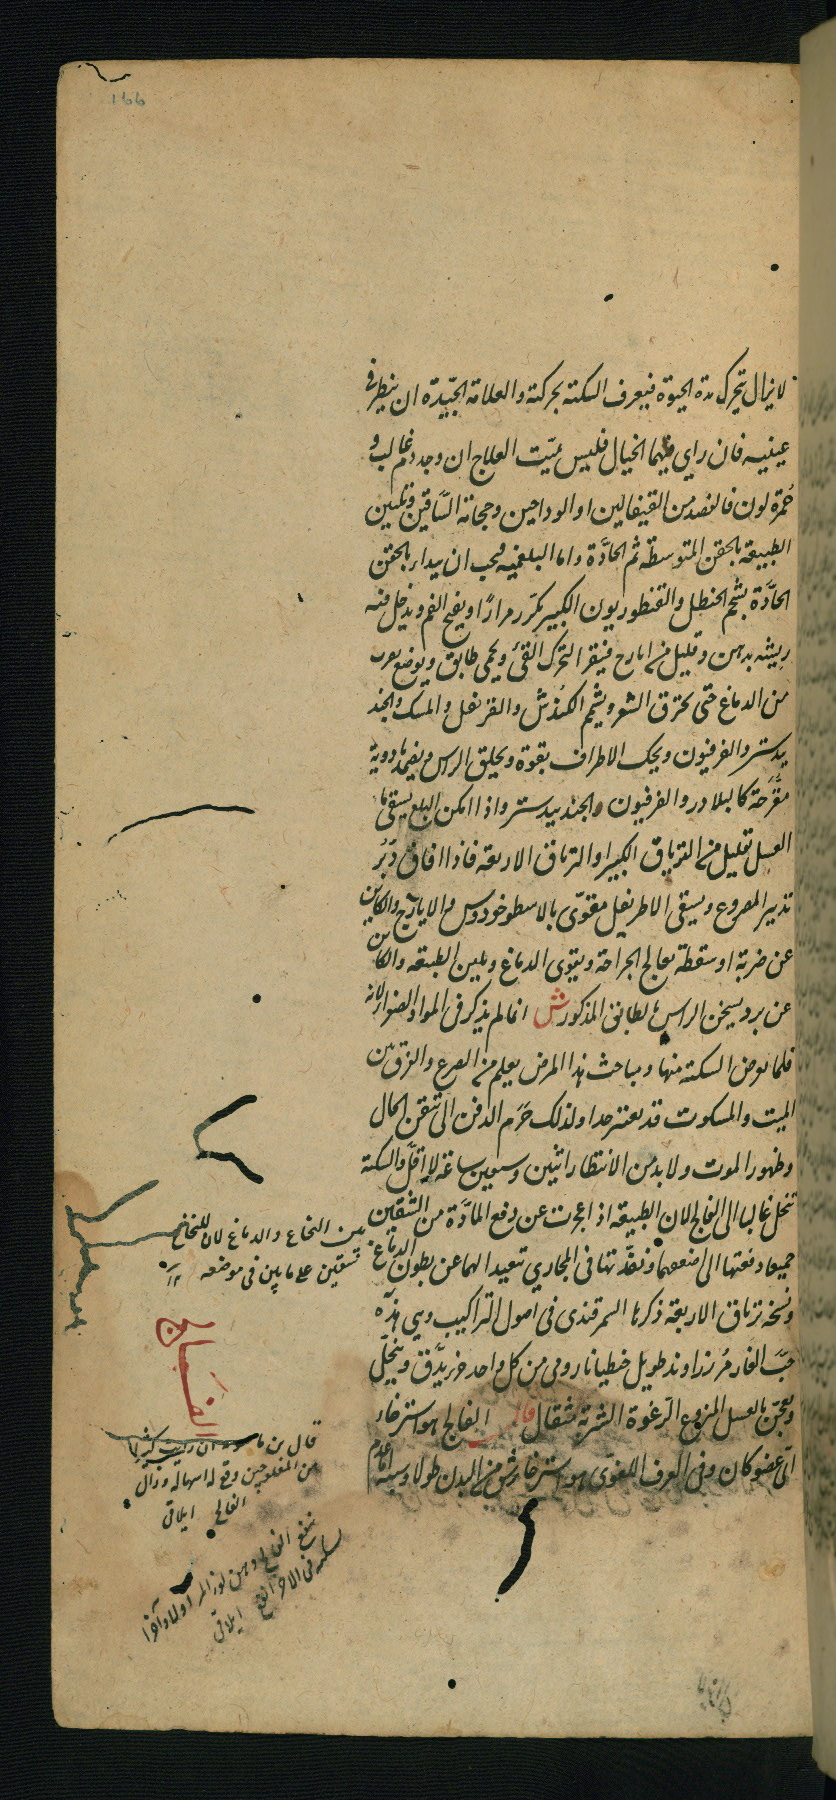 لا يزال يتحرك مدة الحيوة فيعرف السكتة بحركته والعلامة الجيّدة ان ينظر في
عينيه فان راي فيهما الخيال فليس بميّت العلاج ان وجد دم غالب و
حُمرة لون فالفصد من القيفالين او الوداجين وحجامة السَّاقين وتليين
الطبيعة بالحقن المتوسطة ثم الحادَّة واما البلغمية فيجب ان يبدا بالحقن
الحادَّة بشحم الحنطل والقنطوريون الكبير يكرر مرارًا ويفتح الفم ويدخل فيه
ريشه بدهن وقليل من ايارج فيقرا لتحرك القئ ويحمى طابق ويوضع بقرب
من الدماغ حتى يحترق الشعر ويشم الكندش والقرنفل والمسك والجند
بيدستر والفرفيون ويحك الاطراف بقوة ويحلق الراس ويضمد بادوية
مقرّحة كالبلادر والفرفيون والجندبيدستر واذا امكن البلع يسقى ماء
العسل بقليل من الترياق الكبير او الترياق الاربعة فاذا افاق دُبّر
تدبير المصروع ويسقى الاطريفل مقوّى بالاسطوخودوس والايارج والكاين
عن ضربة او سقطة يعالج الجراحة ويقوى الدماغ ويلين الطبيعة والكاين
عن برد يسخن الراس بالطابق المذكور ش انما لم يذكر في المواد الصفراء لانه
قلما يعرض السكتة منها ومباحث هذا المرض يعلم من الصرع والفرق بين
الميت والمسكوت قد يعسر جدا ولذلك حَرُم الدفن الى تيقن الحال
وظهور الموت ولا بد من الانتظار اثنين وسبعين ساعة لا اقلّ والسكتة
تنحل غالبا الى الفالج لان الطبيعة اذا عجزت عن دفع المادّة من الشقين
جميعا دفعتها الى اضعفهما ونفّذتها في المجاري تبعيدا لهما عن بطون الدماغ
ونسخة ترياق الاربعة ذكرها السمرقندى في اصول التراكيب وهي هذه
حبّ الغار مُر زراوند طويل جنطيانا رومى من كل واحد جزء يدّق وينخل
ويعجن بالعسل المنزوع الرّغوة الشربة مثقال قال الفالج هو استرخاء
اىّ عضو كان وفى العرف اللغوى هو استرخاء شق من البدن طولا وسببه اما عدم
بين النخاع والدماغ لان للنخاع
شقين على ما بين في موضعه ١٢
الفالج
من المفلوجين وقع له اسهال وزال
الفالج ايلاقى
ايلاقى